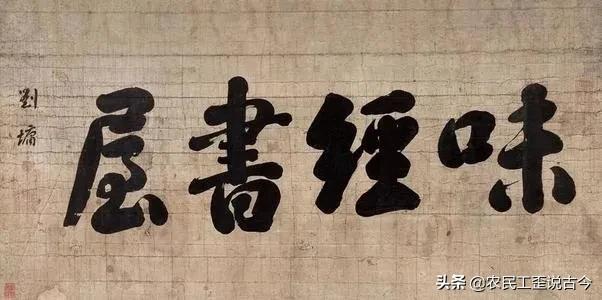 味經書屋
劉墉
头条 @农民工歪说古今